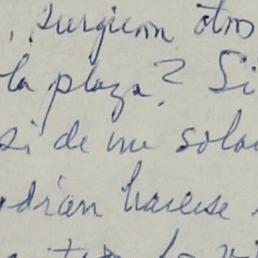 , surgieron otros
la plaza? Si
si de un sola
odrían hacerse